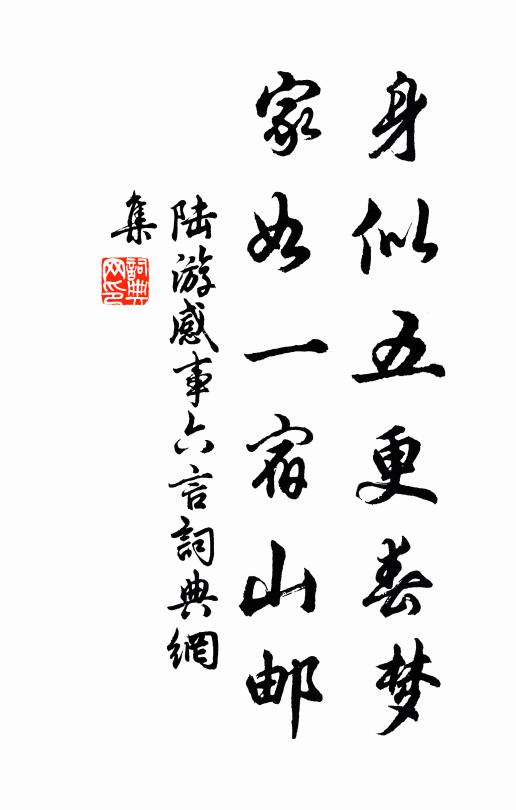 身似五更春梦
家如一宿山邮
陆游感事六言詞典網
集
詞典
网印